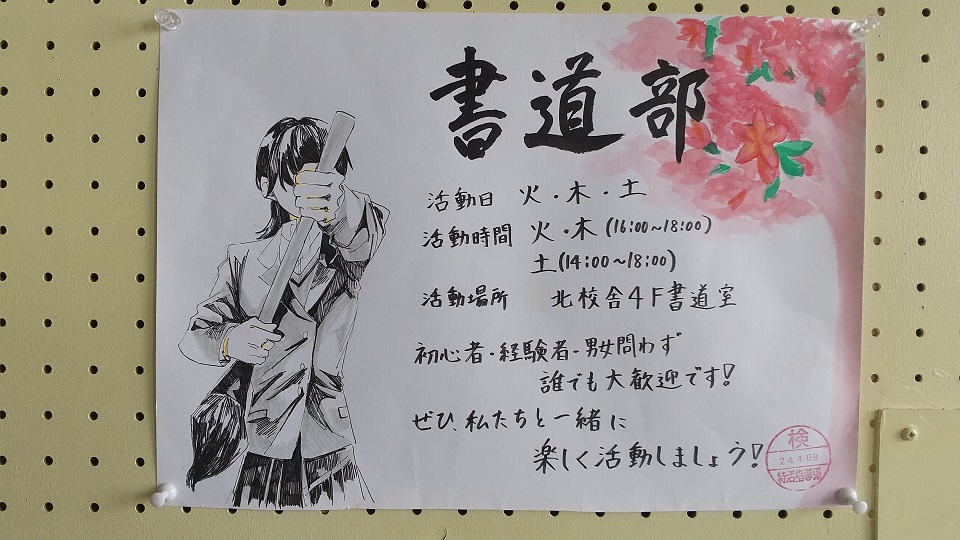 書道部
活動日 火・木・土
活動時間 火・木(16:00~18:00)
土(14:00~18:00)
活動場所 北校舎4F書道室
初心者・経験者・男女問わず
誰でも大歓迎です!
ぜひ、私たちと一緒に
楽しく活動しましょう!
検
24.4.09
特活指導部